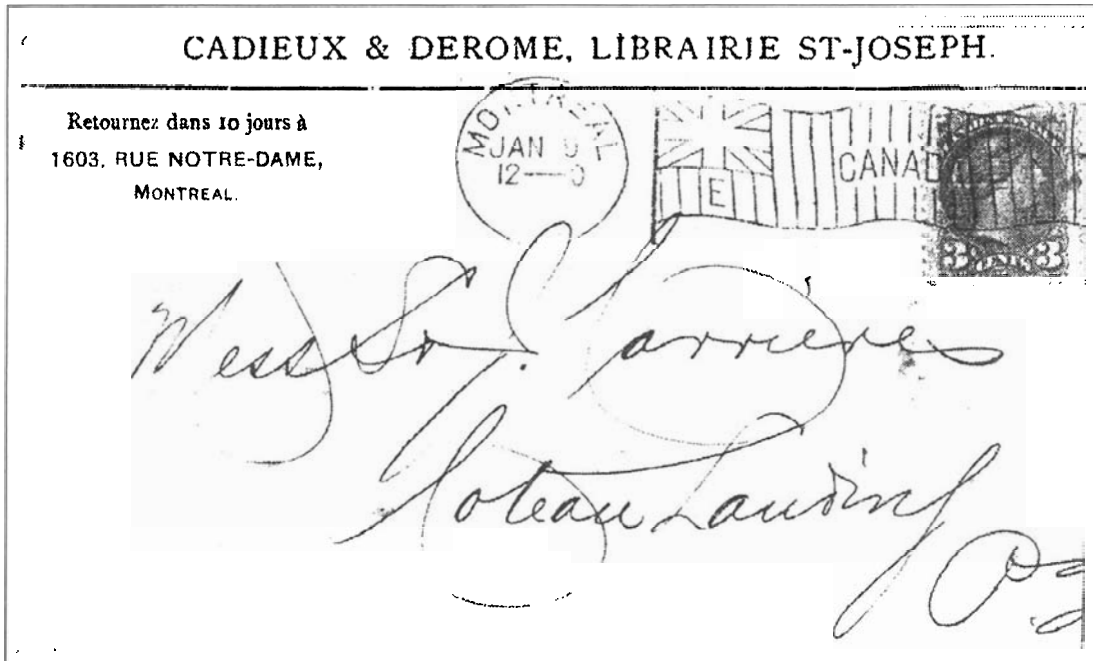 CADIEUX & DEROME, LIBRAIRIE ST-JOSEPH.
Retournez dans 10 jours à
1603, RUE NOTRE-DAME,
MONTREAL.
MONTREAL
JAN 9
12—0
E
CANADA
3 CENTS 3
Mess Sr J. Carrieres
Coteau Landing
P.Q